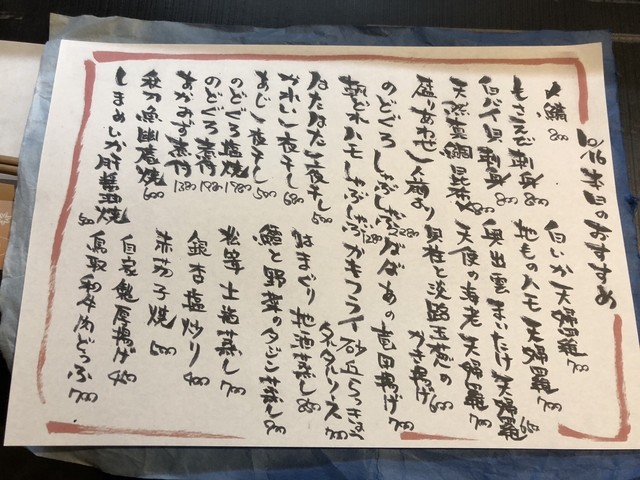 10/16 本日のおすすめ
〆鯖 800
モサエビ刺身 800
白バイ貝刺身 800
天然真鯛昆布〆 800
盛りあわせ 一人前より
のどぐろ しゃぶしゃぶ
ハモ しゃぶしゃぶ 1280
はたはた一夜干し 500
かれい一夜干し 680
あじ一夜干し 500
のどぐろ塩焼 1980
のどぐろ煮付 1980
煮付 1380
秋刀魚幽庵焼 600
しまめいか肝醤油焼 500
白いか天婦羅 700
地ものハモ天婦羅 700
奥出雲まいたけ天婦羅 600
天使の海老天婦羅 700
貝柱と淡路玉葱の
かき揚げ 600
ばばあの竜田揚げ 700
カキフライ 砂丘らっきょう
タルタルソース 700
はまぐり 地酒蒸し 800
鯛と野菜のタジン蒸し
松茸土瓶蒸し 700
銀杏塩炒り 400
茄子焼 500
自家製厚揚げ 400
鳥取和牛肉どうふ 700